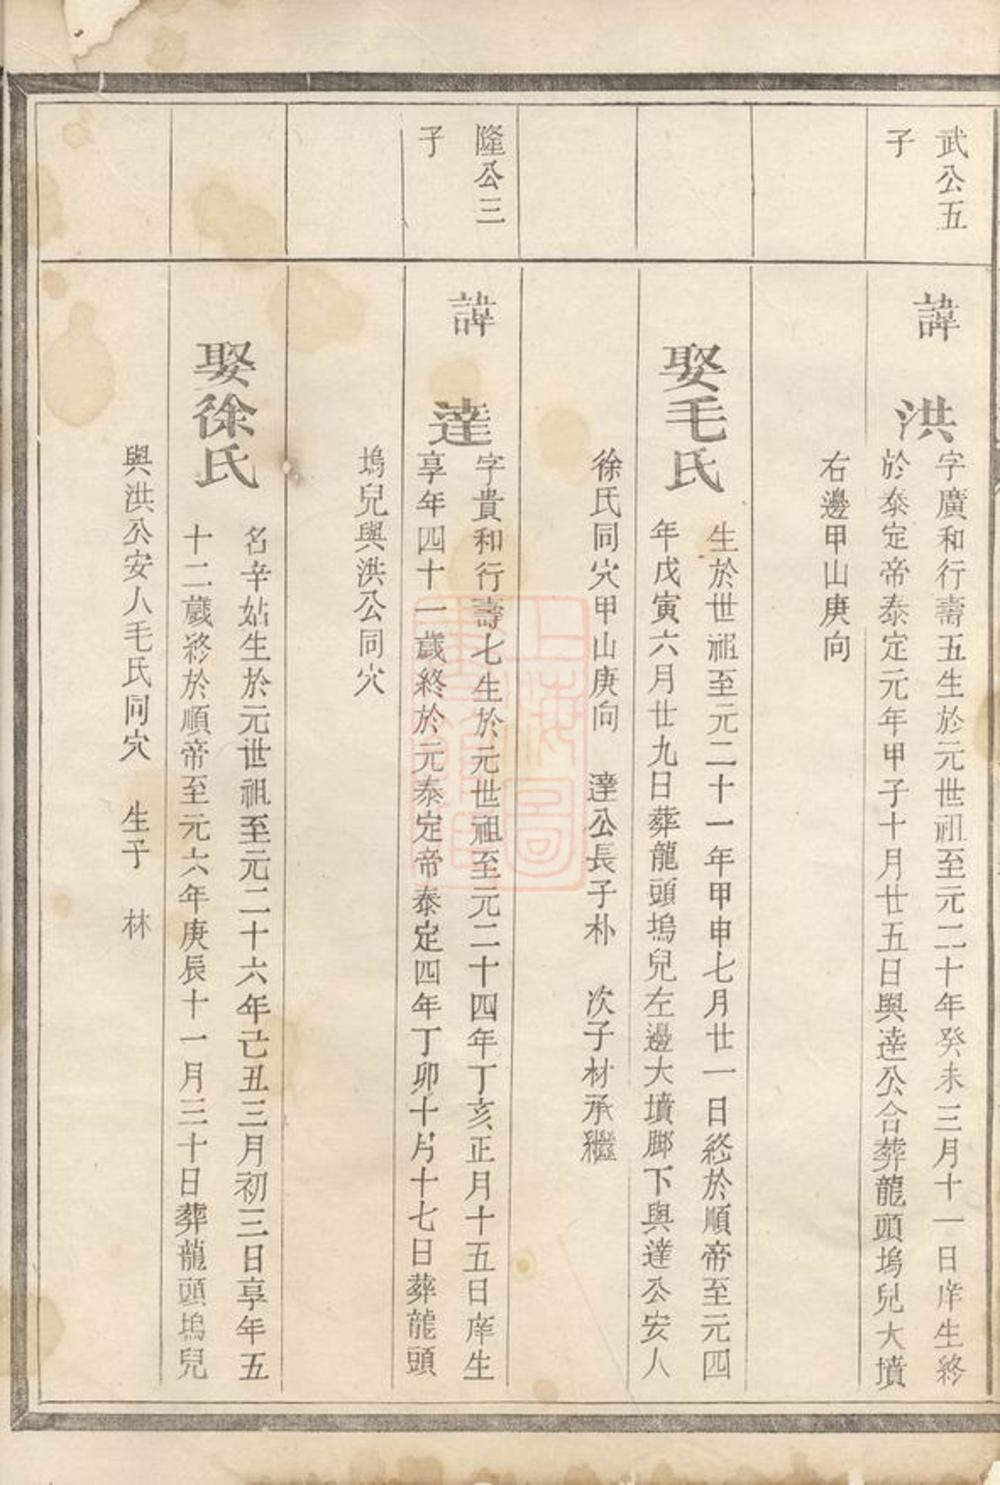 武公五
子
諱 洪
字廣和行壽五生於元世祖至元二十年癸未三月十一日庠生終
於泰定帝泰定元年甲子十月廿五日與達公合葬龍頭塢兒大墳
右邊甲山庚向
娶毛氏
生於世祖至元二十一年甲申七月廿一日終於順帝至元四
年戊寅六月廿九日葬龍頭塢兒左邊大墳腳下與達公安人
徐氏同穴甲山庚向 達公長子朴 次子材承繼
隆公三
子
諱 達
字貴和行壽七生於元世祖至元二十四年丁亥正月十五日庠生
享年四十一歲終於元泰定帝泰定四年丁卯十月十七日葬龍頭
塢兒與洪公同穴
娶徐氏
名辛姑生於元世祖至元二十六年己丑三月初三日享年五
十二歲終於順帝至元六年庚辰十一月三十日葬龍頭塢兒
與洪公安人毛氏同穴 生子 林
上海圖
書館藏